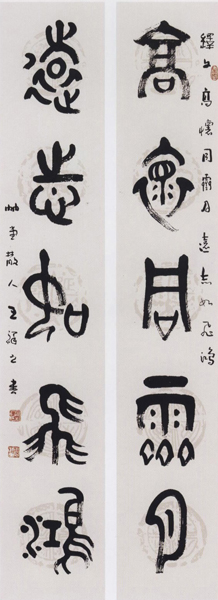 文高懷同霽月遠志如飛鴻
高懷同霽月
遠志如飛鴻
散人王之書